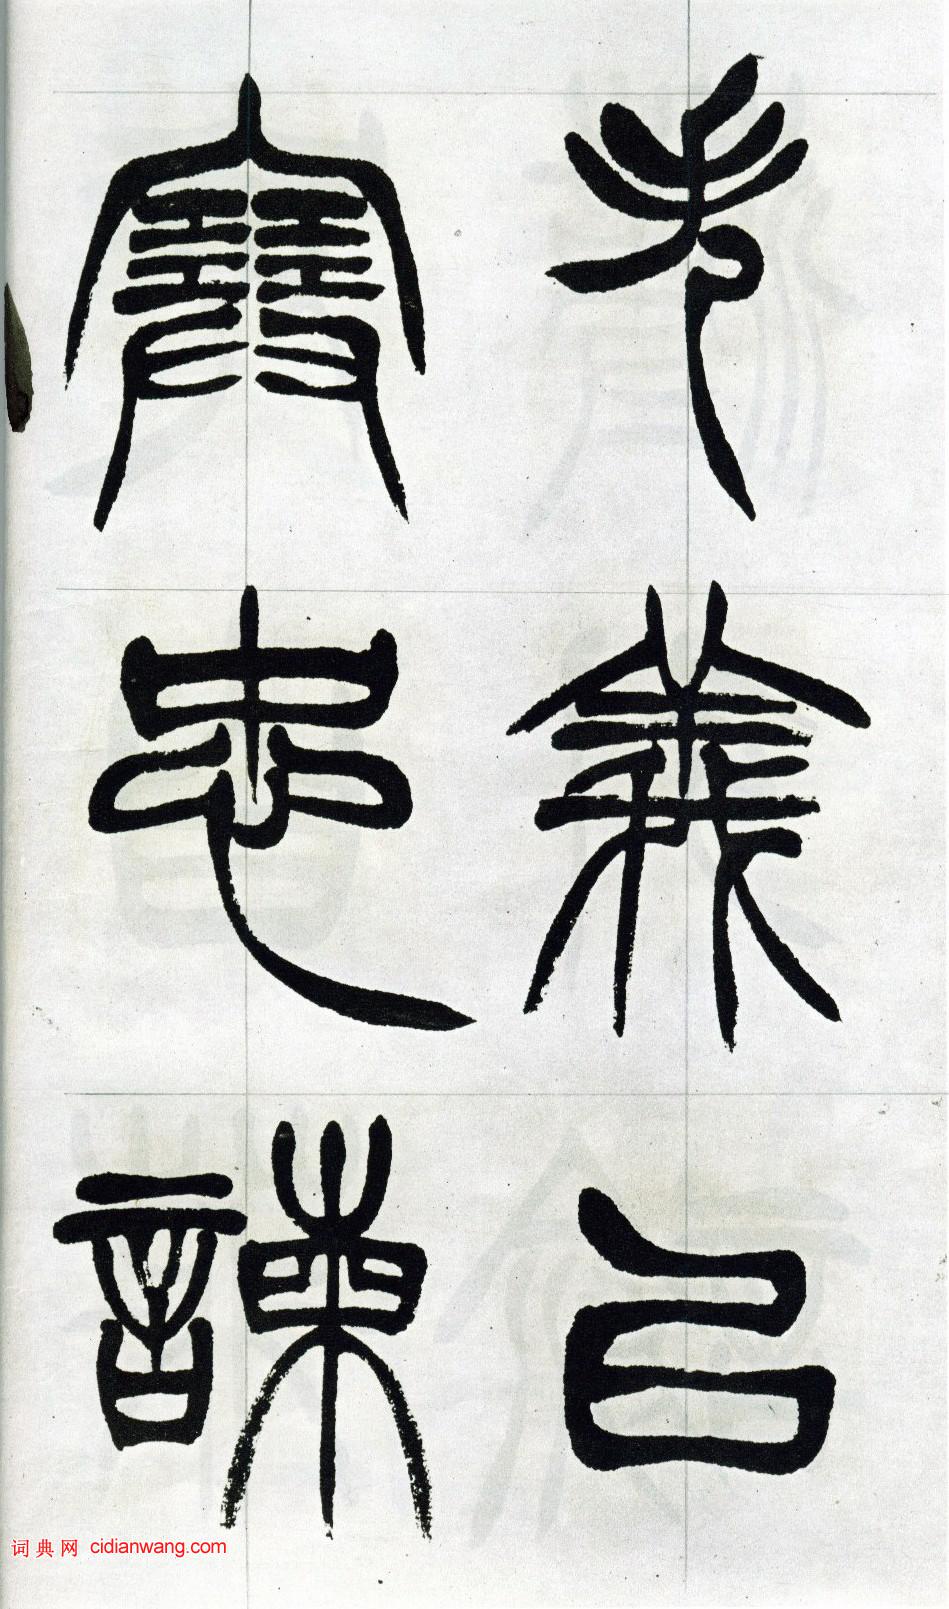 失義㠯
塞忠諫
词典网 cidianwang.com